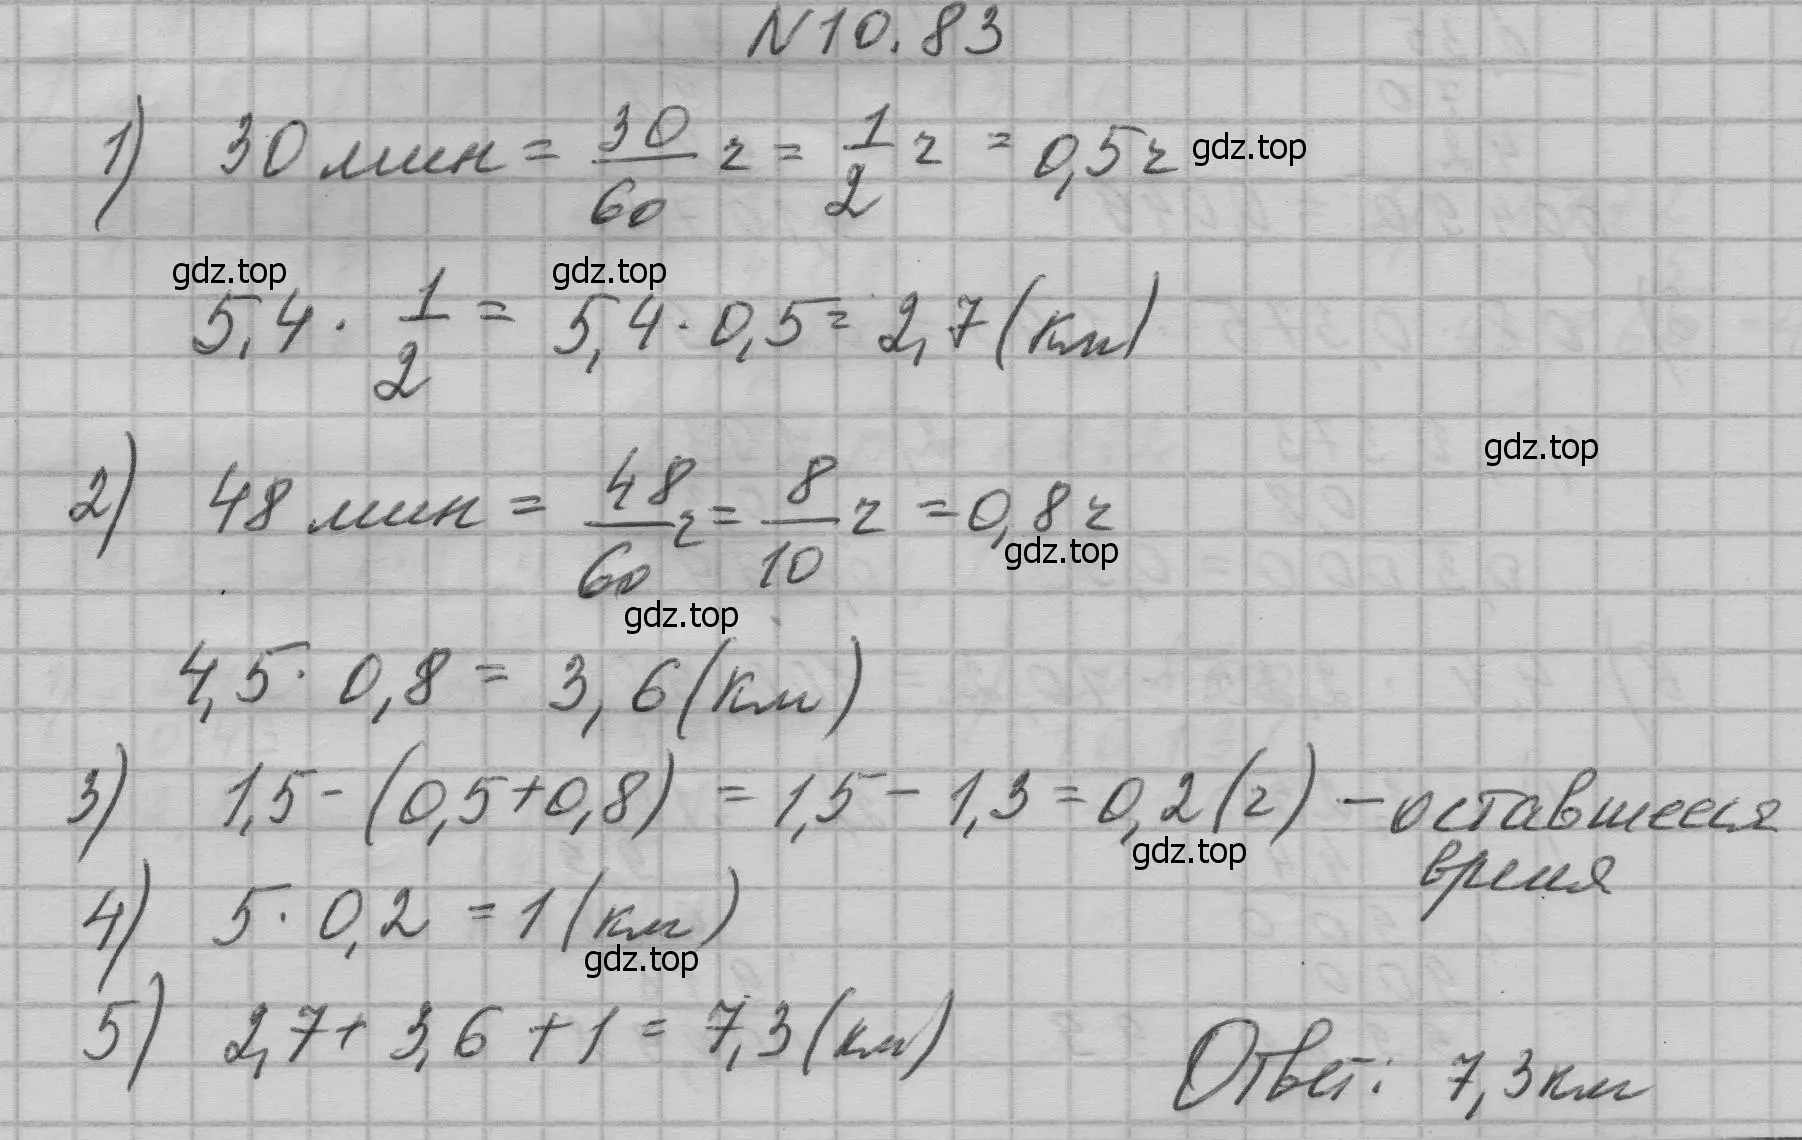 N10.83
1) 30 мин = 30/60 ч = 1/2 ч = 0,5 ч gdz.top
gdz.top gdz.top
5,4 · 1/2 = 5,4 · 0,5 = 2,7 (км)
gdz.top
2) 48 мин = 48/60 ч = 8/10 ч = 0,8 ч
gdz.top
gdz.top
4,5 · 0,8 = 3,6 (км)
3) 1,5 - (0,5 + 0,8) = 1,5 - 1,3 = 0,2 (ч) - оставшееся
gdz.top время
4) 5 · 0,2 = 1 (км)
gdz.top
5) 2,7 + 3,6 + 1 = 7,3 (км)
Ответ: 7,3 км